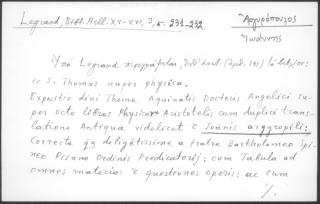 Legrand, Bibl. Hell. XV-XVI, 3, σ. 231-232.
Ἀργυρόπουλος
Ἰωάννης
Ὑπὸ Legrand περιγράφεται,
S. Thomas super physica.
Expositio divi Thome Aquinatis Doctoris Angelici su-
per octo libros Physicorum Aristotelis cum duplici trans-
latione Antiqua videlicet &
Ioannis argyropili:
Correcta diligentissime a fratre Bartholomeo Spi-
neo Pisano Ordinis Predicatorum: cum Tabula ad
omnes materias & questiones operis: ac cum
./.